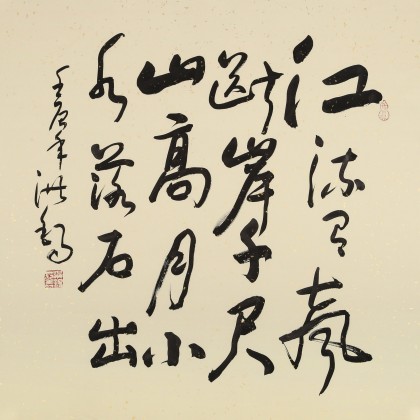 江流有聲
斷岸千尺
山高月小
水落石出
壬辰年洪